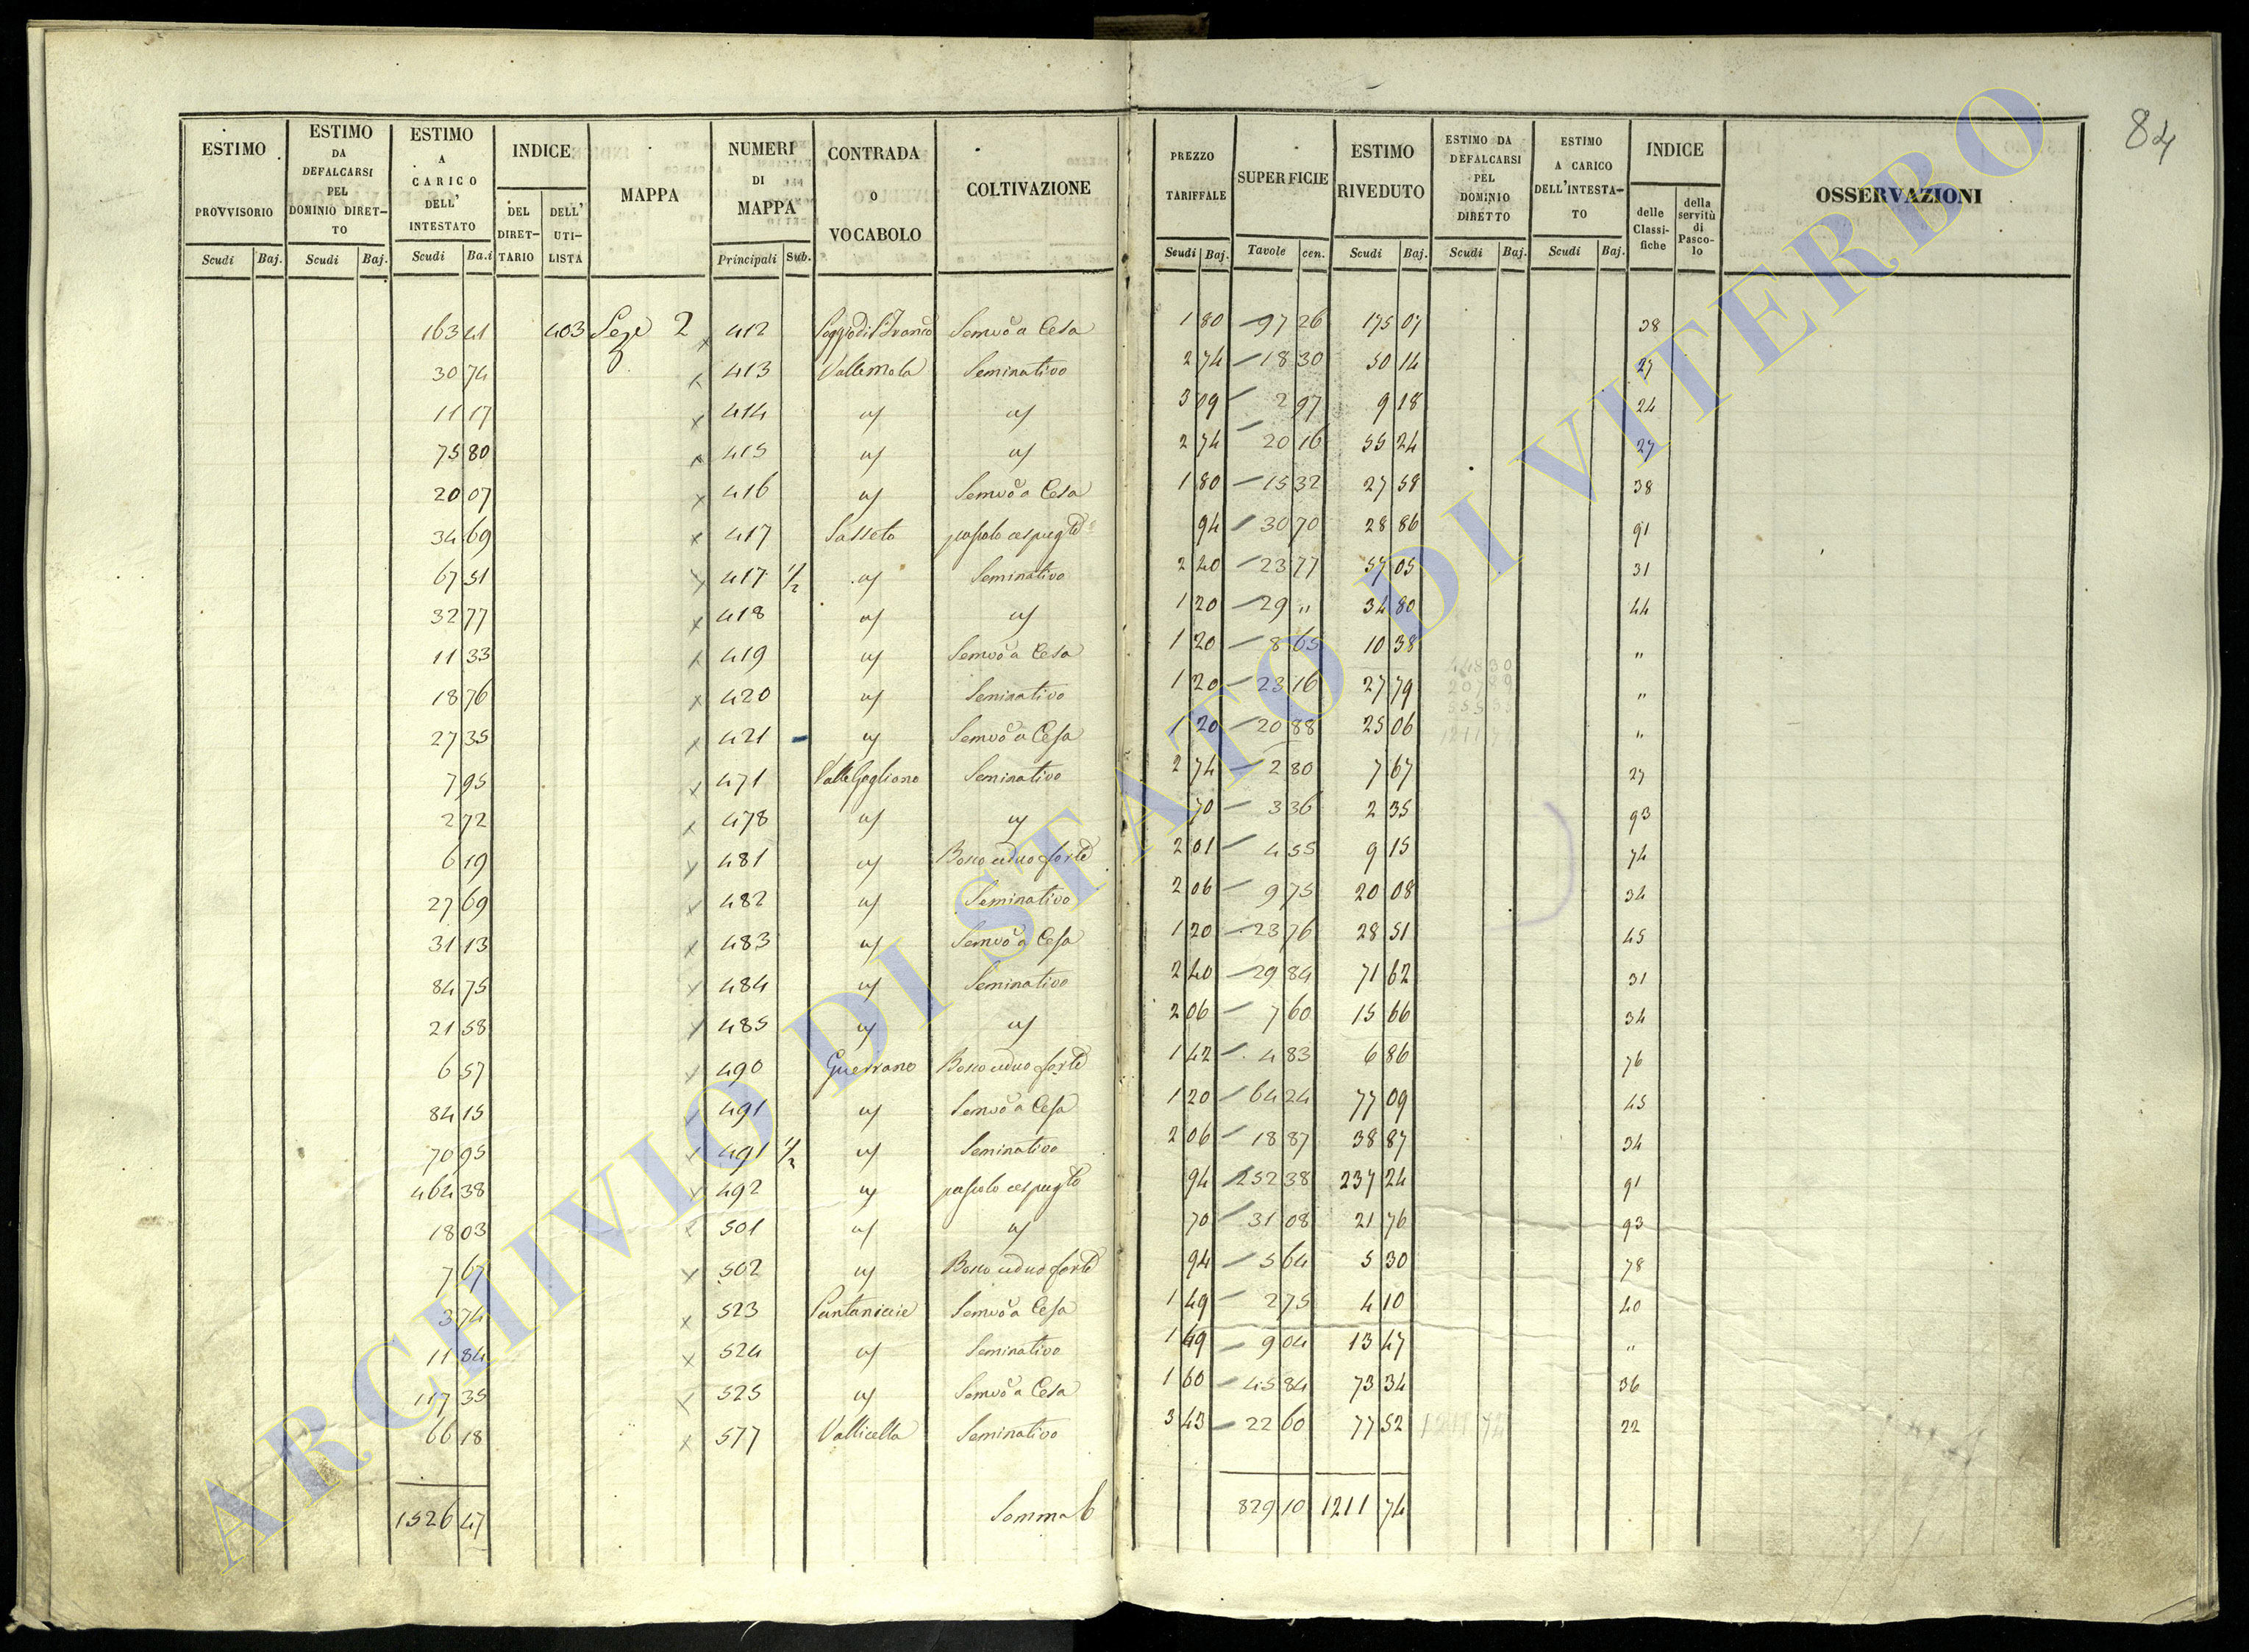 84
ESTIMO PROVVISORIO Scudi Baj. | ESTIMO DA DEFALCARSI PEL DOMINIO DIRETTO Scudi Baj. | ESTIMO A CARICO DELL' INTESTATO Scudi Ba.i | INDICE DEL DIRETTARIO DELL' UTILISTA | MAPPA | NUMERI DI MAPPA Principali Sub. | CONTRADA O VOCABOLO | COLTIVAZIONE | PREZZO TARIFFALE Scudi Baj. | SUPERFICIE Tavole cen. | ESTIMO RIVEDUTO Scudi Baj. | ESTIMO DA DEFALCARSI PEL DOMINIO DIRETTO Scudi Baj. | ESTIMO A CARICO DELL'INTESTATO Scudi Baj. | INDICE delle Classifiche della servitù di Pascolo | OSSERVAZIONI
163 41 403 2 x 412 Semvo a Cesa 1 80 97 26 175 07 38
30 74 x 413 Valle Mola Seminativo 2 74 18 30 50 14 27
11 17 x 414 " " 3 09 2 97 9 18 24
75 80 x 415 " " 2 74 20 16 55 24 27
20 07 x 416 " Semvo a Cesa 1 80 15 32 27 58 38
34 69 x 417 Sasseto pascolo cespugto 94 30 70 28 86 91
67 51 x 417 1/2 " Seminativo 2 40 23 77 57 05 31
32 77 x 418 " " 1 20 29 " 34 80 44
11 33 x 419 " Semvo a Cesa 1 20 8 65 10 38 "
18 76 x 420 " Seminativo 1 20 23 16 27 79 "
27 35 x 421 " Semvo a Cesa 1 20 20 88 25 06 "
7 95 x 471 Valle Gogliano Seminativo 2 74 2 80 7 67 27
2 72 x 478 " " 70 3 36 2 35 93
6 19 x 481 " Bosco ceduo forte 2 01 4 55 9 15 74
27 69 x 482 " Seminativo 2 06 9 75 20 08 34
31 13 x 483 " Semvo a Cesa 1 20 23 76 28 51 45
84 75 x 484 " Seminativo 2 40 29 84 71 62 31
21 58 x 485 " " 2 06 7 60 15 66 34
6 57 x 490 Guerrano Bosco ceduo forte 1 42 4 83 6 86 76
84 15 x 491 " Semvo a Cesa 1 20 64 24 77 09 45
70 95 x 491 1/2 " Seminativo 2 06 18 87 38 87 34
464 38 x 492 " pascolo cespugto 94 252 38 237 24 91
18 03 x 501 " " 70 31 08 21 76 93
7 67 x 502 " Bosco ceduo forte 94 5 64 5 30 78
3 74 x 523 Semvo a Cesa 1 49 2 75 4 10 40
11 84 x 524 " Seminativo 1 49 9 04 13 47 "
117 35 x 525 " Semvo a Cesa 1 60 45 84 73 34 36
66 18 x 577 Vallicella Seminativo 3 43 22 60 77 52 1211 74 22
1526 47 Somma 829 10 1211 74
ARCHIVIO DI STATO DI VITERBO